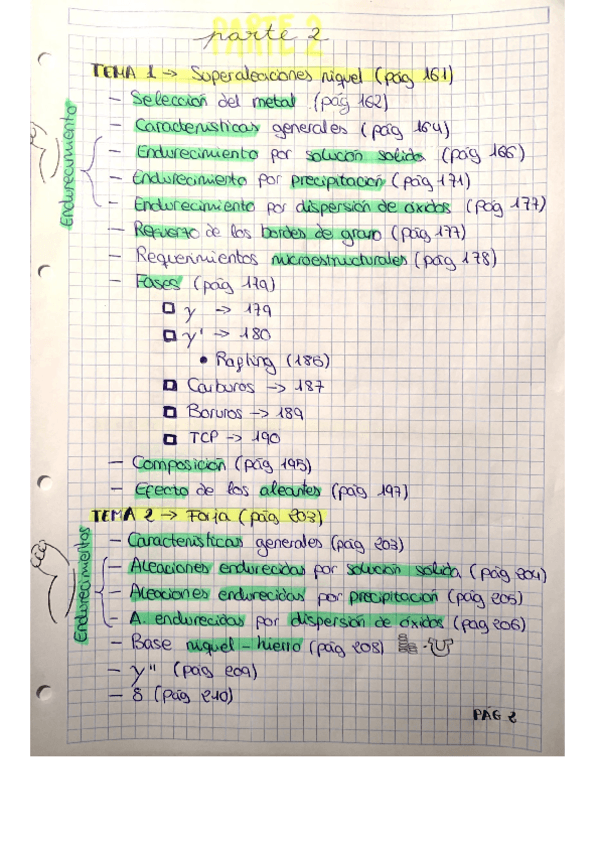 parte 2
TEMA 1 -> Superaleaciones niquel (pág 161)
- Selección del metal (pág 162)
- Características generales (pág 164)
- Endurecimiento por solución solida (pág 166)
- Endurecimiento por precipitación (pág 171)
- Endurecimiento por dispersión de óxidos (pág 177)
Endurecimiento
- Refuerzo de los bordes de grano (pág 177)
- Requerimientos microestructurales (pág 178)
- Fases (pág 179)
γ -> 179
γ' -> 180
• Rafting (186)
Carburos -> 187
Boruros -> 189
TCP -> 190
- Composición (pág 195)
- Efecto de los aleantes (pág 197)
TEMA 2 -> Forja (pág 203)
- Características generales (pág 203)
- Aleaciones endurecidas por solución solida (pág 204)
- Aleaciones endurecidas por precipitación (pág 205)
- A. endurecidas por dispersión de óxidos (pág 206)
Endurecimientos
- Base niquel-hierro (pág 208)
- γ'' (pág 209)
- δ (pág 210)
PÁG 2